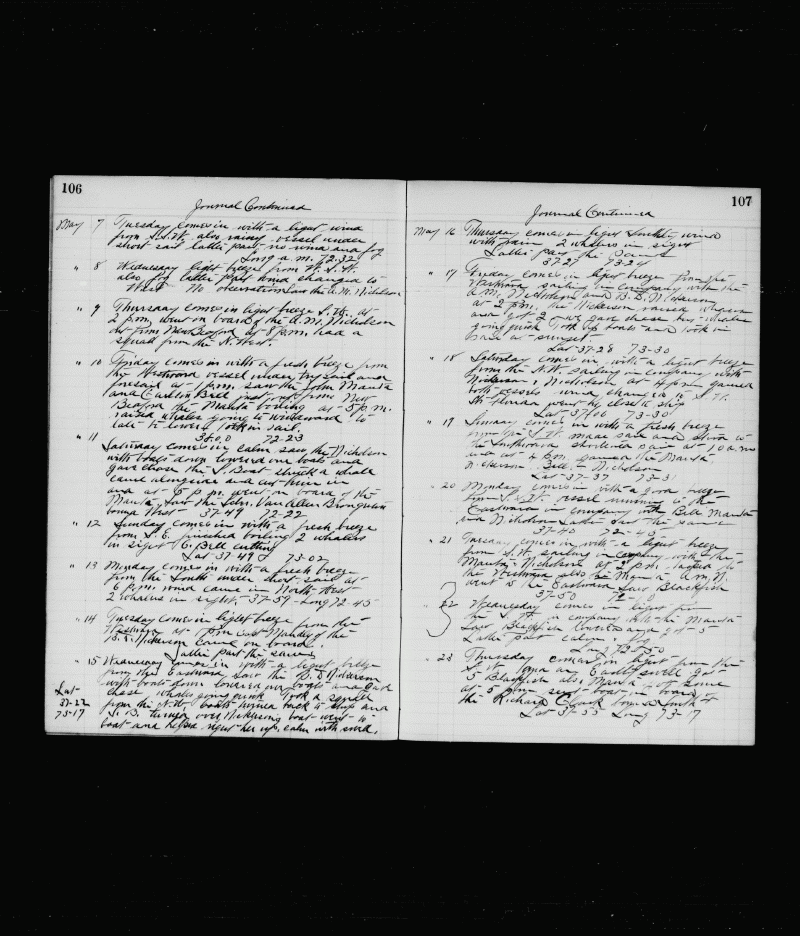 106
Journal Continued
May 7 Tuesday comes in with a light wind
from S.W. also rainy vessel under
short sail latter part no wind and fog
Long a.m. 72-32
" 8 Wednesday light breeze from W. S. W.
also fog latter part wind changed to
West No observation saw the A.M. Nicholson
" 9 Thursday comes in light breeze S.W. at
2 p.m. went on board of the A.M. Nicholson
out from New Bedford at 8 p.m. had a
squall from the N. West.
" 10 Friday comes in with a fresh breeze from
the Westward vessel under try sail and
foresail at 1 p.m. saw the John Manta
and Carleton Bell just out from New
Bedford the Manta boiling at 5 p.m.
raised whales going to windward to
late to lower took in sail.
72-23
" 11
Saturday comes in calm saw the Nicholson
with boats down lowered our boats and
gave chase the S. Boat struck a whale
came alongside and cut him in
and at 6 p.m. went on board of the
Manta, saw the Schr. Van Allen Broughton
bound West 37-49 72-22
" 12 Sunday comes in with a fresh breeze
from S.E. finished boiling 2 whalers
in sight C. Bell cutting
Lat 37-49 73-02
" 13 Monday comes in with a fresh breeze
from the South under short sail at
6 p.m. wind came in North West
2 whalers in sight. 37-59 - Long 72-45
" 14 Tuesday comes in light breeze from the
at p.m. Capt Mandly of the
B.D. Nickerson came on board
Latter part the same
" 15 Wednesday comes in with a light breeze
from the Eastward saw the B.D. Nickerson
with boats down lowered our boats and gave
chase whales going quick took a squall
from the N.W. boats turned back to ship and
S.B. turned over Nickerson's boat went to
boat and helped right her up. calm with swell.
Lat
37-22
73-17
107
Journal Continued
May 16 Thursday comes in light Southly wind
with rain 2 whalers in sight
Latter part the same
37-27 73-34
" 17 Friday comes in light breeze from the
Westward sailing in company with the
A.M. Nicholson and B.D. Nickerson
at 2 p.m. the Nickerson raised whales
and got 2 we gave chase but whales
going quick took up boats and took in
sail at sunset.
Lat-37-28 73-30
" 18 Saturday comes in with a light breeze
from the N.W. sailing in company with
Nickerson & Nicholson at 4 p.m. gamed
both vessels wind changed to S.W.
went by close to ship
Lat 37-06 73-30
" 19 Sunday comes in with a fresh breeze
from the S.W. made sail and stood to
the Southward shortened sail at 10 a.m.
and at 4 p.m. gamed the Manta
Nickerson - Bell - Nicholson
Lat-37-37 73-31
" 20 Monday comes in with a good breeze
from S.W. vessel running to the
Eastward in company with Bell Manta
and Nicholson Latter Part the same
37-40 72-40
" 21 Tuesday comes in with a light breeze
from S.W. sailing in company with the
Manta-Nicholson at 2 p.m. tacked to
the Westward also Manta A.M.N.
went to the Eastward saw Blackfish
37-50
" 22 Wednesday comes in light from
the S.W. in company with the Manta
saw Blackfish lowered and got 5
Latter part calm
" 23 Thursday comes in light from the
S.W. and an Easterly swell got
5 Blackfish also Manta got some
at 5 p.m. sent boat on board of
the Richard Clark bound South
Lat 37-55 Long 73-17